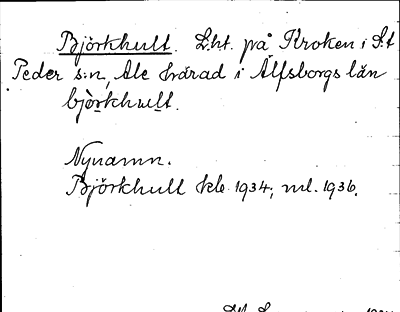 Björkhult. Lht. på Kroken i S:t
Peder s:n, Ale härad i Älfsborgs län
björkhult.
Nynamn.
Björkhult kle. 1934, ml. 1936.